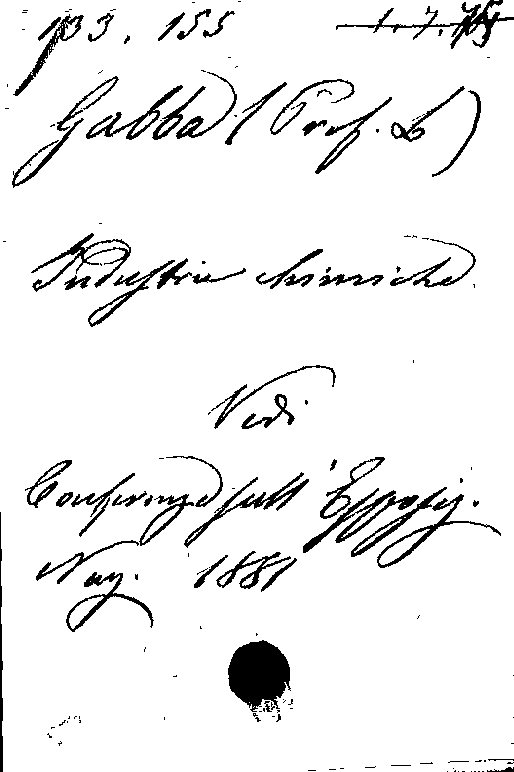 133. 155
Gabba (Prof. L)
Industrie chimiche
Vedi
Conferenze sull' Esposiz.
Naz. 1881